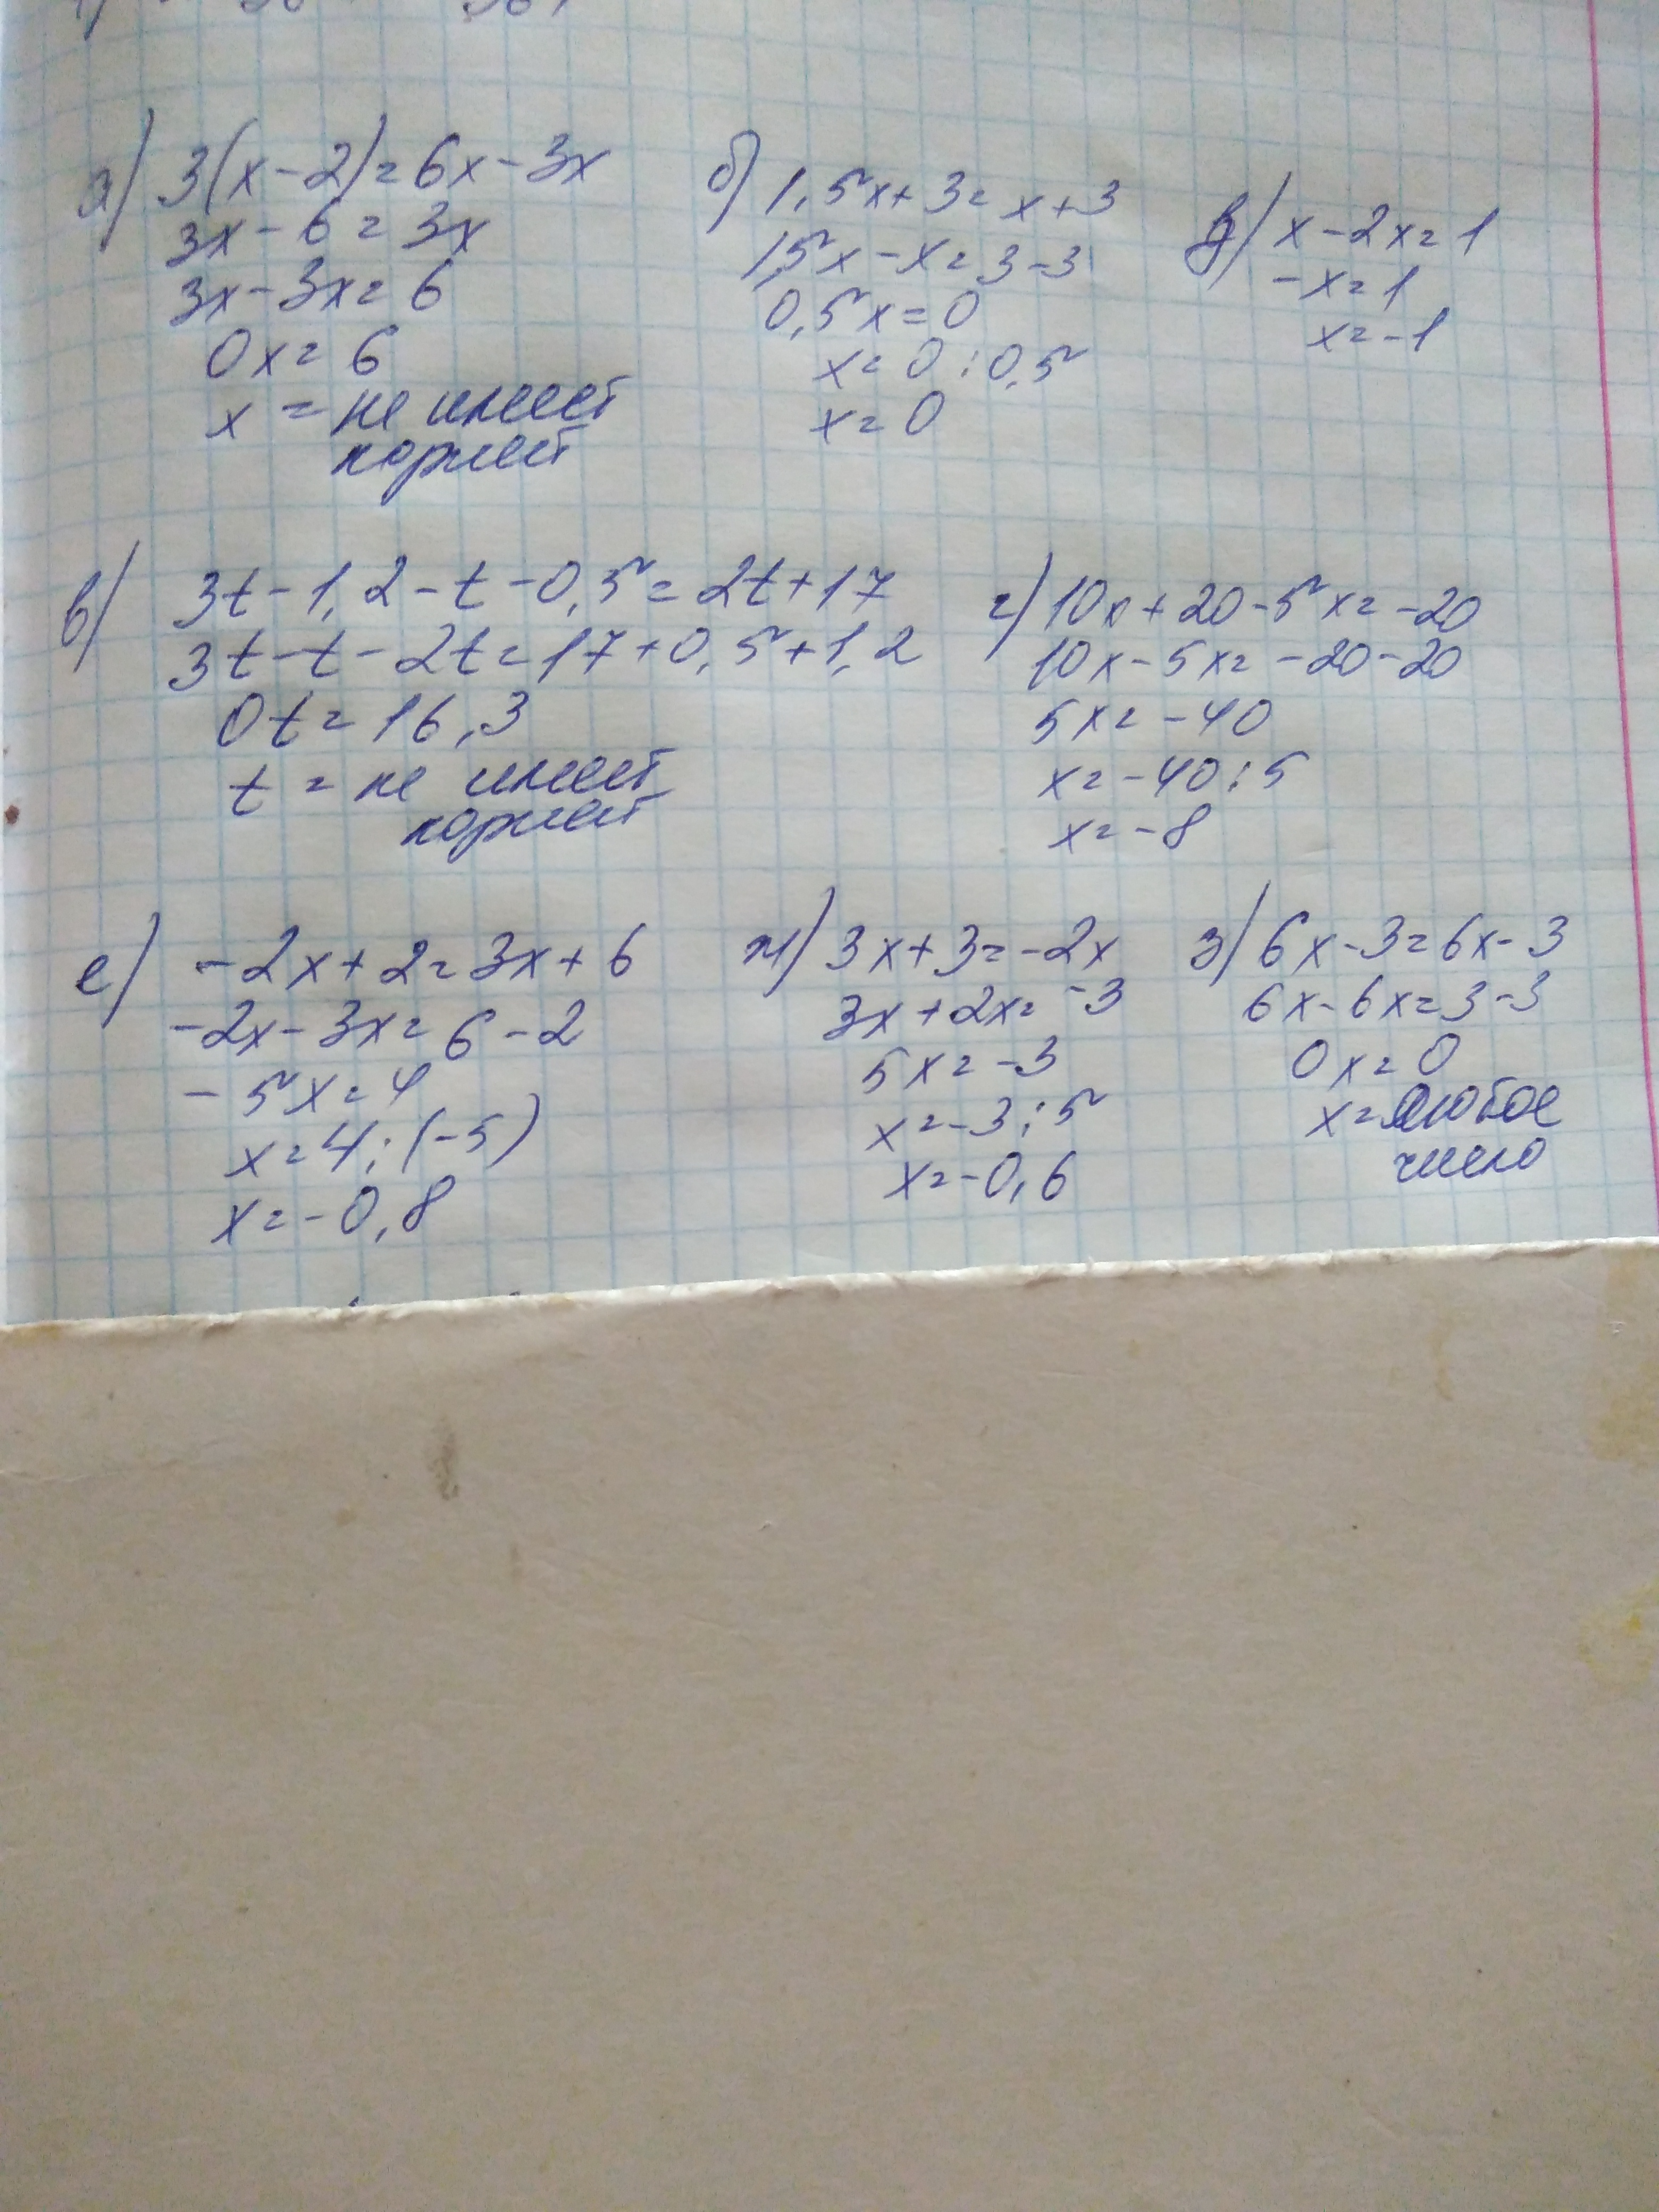 а) 3(x-2)=6x-3x
3x-6=3x
3x-3x=6
0x=6
x = не имеет
корней
б) 1,5x+3=x+3
1,5x-x=3-3
0,5x=0
x=0:0,5
x=0
x-2x=1
-x=1
x=-1
в) 3t-1,2-t-0,5=2t+17
3t-t-2t=17+0,5+1,2
0t=16,3
t = не имеет
корней
г) 10x+20-5x=-20
10x-5x=-20-20
5x=-40
x=-40:5
x=-8
е) -2x+2=3x+6
-2x-3x=6-2
-5x=4
x=4:(-5)
x=-0,8
ж) 3x+3=-2x
3x+2x=-3
5x=-3
x=-3:5
x=-0,6
з) 6x-3=6x-3
6x-6x=3-3
0x=0
x=любое
число